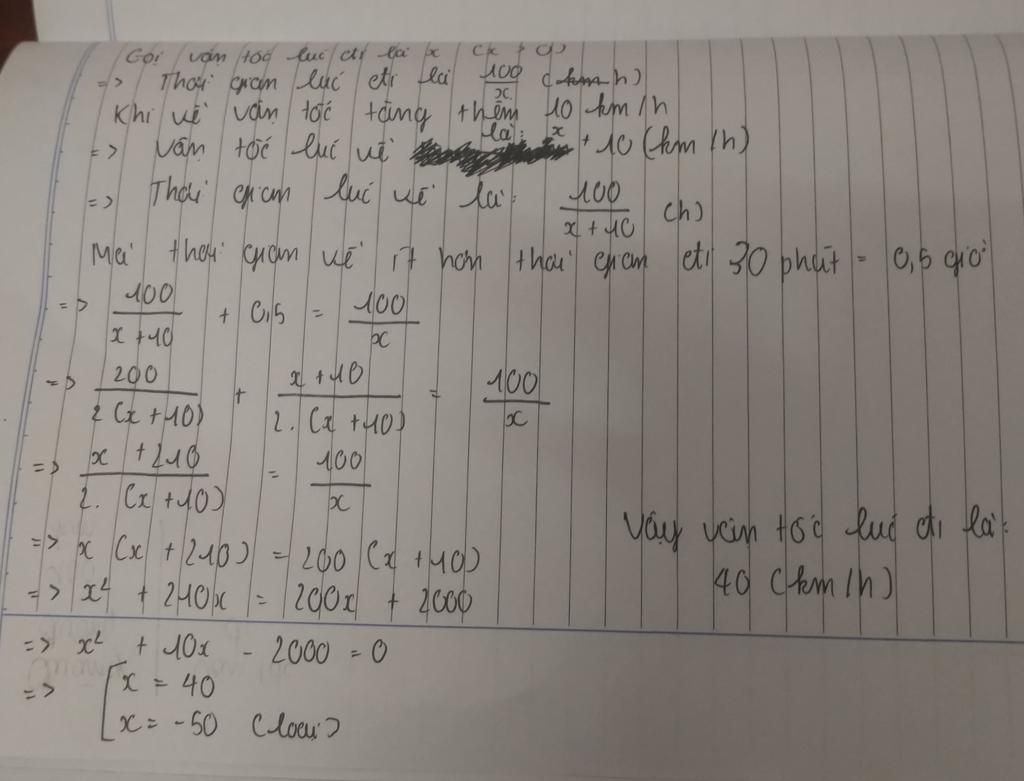 Gọi vận tốc lúc đi là x (x > 0)
=> Thời gian lúc đi là 100/x (km/h)
Khi về vận tốc tăng thêm 10 km/h
=> Vận tốc lúc về là: x + 10 (km/h)
=> Thời gian lúc về là: 100/(x + 10) (h)
Mà thời gian về ít hơn thời gian đi 30 phút = 0,5 giờ
=> 100/(x + 10) + 0,5 = 100/x
=> 200/(2(x + 10)) + (x + 10)/(2.(x + 10)) = 100/x
=> (x + 210)/(2.(x + 10)) = 100/x
=> x (x + 210) = 200 (x + 10)
=> x² + 210x = 200x + 2000
=> x² + 10x - 2000 = 0
=> [ x = 40
x = -50 (loại)
Vậy vận tốc lúc đi là:
40 (km/h)